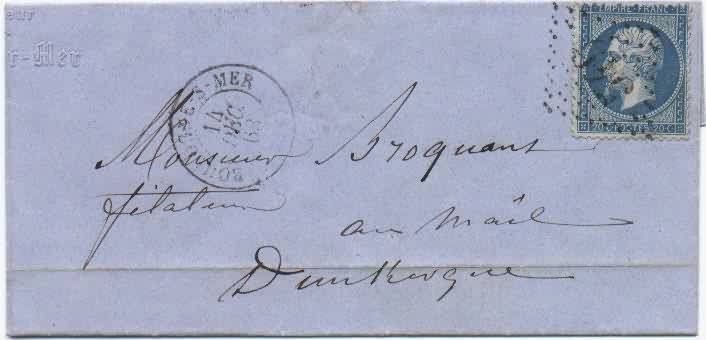 eur
r-Mer
EMPIRE FRANC
20 C POSTES 20 C
BOULOGNE-S-MER
14
DEC
63
Monsieur Broquant
filateur
au Mail
Dunkerque